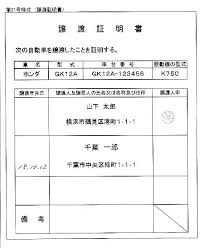 第21号様式 (譲渡証明書)
譲渡証明書
次の自動車を譲渡したことを証明する。
車名 型式 車台番号 原動機の型式
ホンダ GK12A GK12A-123456 K750
譲渡年月日 譲渡人及譲受人の氏名又は名称及び住所 譲渡人印
山下 太郎
横浜市鶴見区港町1-1-1
千葉 一郎
18.10.12 千葉市中央区桜町1-1-1
備考